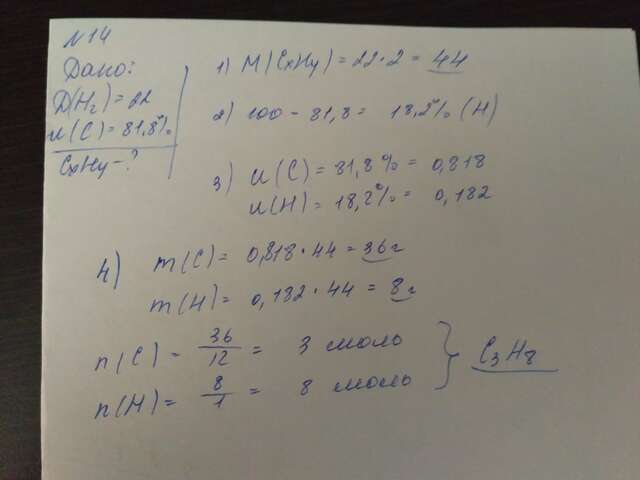 №14
Дано:
D(H₂) = 22
ω(C) = 81,8%
CxHy - ?
1) M(CxHy) = 22·2 = 44
2) 100 - 81,8 = 18,2% (H)
3) ω(C) = 81,8% = 0,818
ω(H) = 18,2% = 0,182
4) m(C) = 0,818·44 = 36г
m(H) = 0,182·44 = 8г
n(C) = 36/12 = 3 моль
n(H) = 8/1 = 8 моль
} C₃H₈